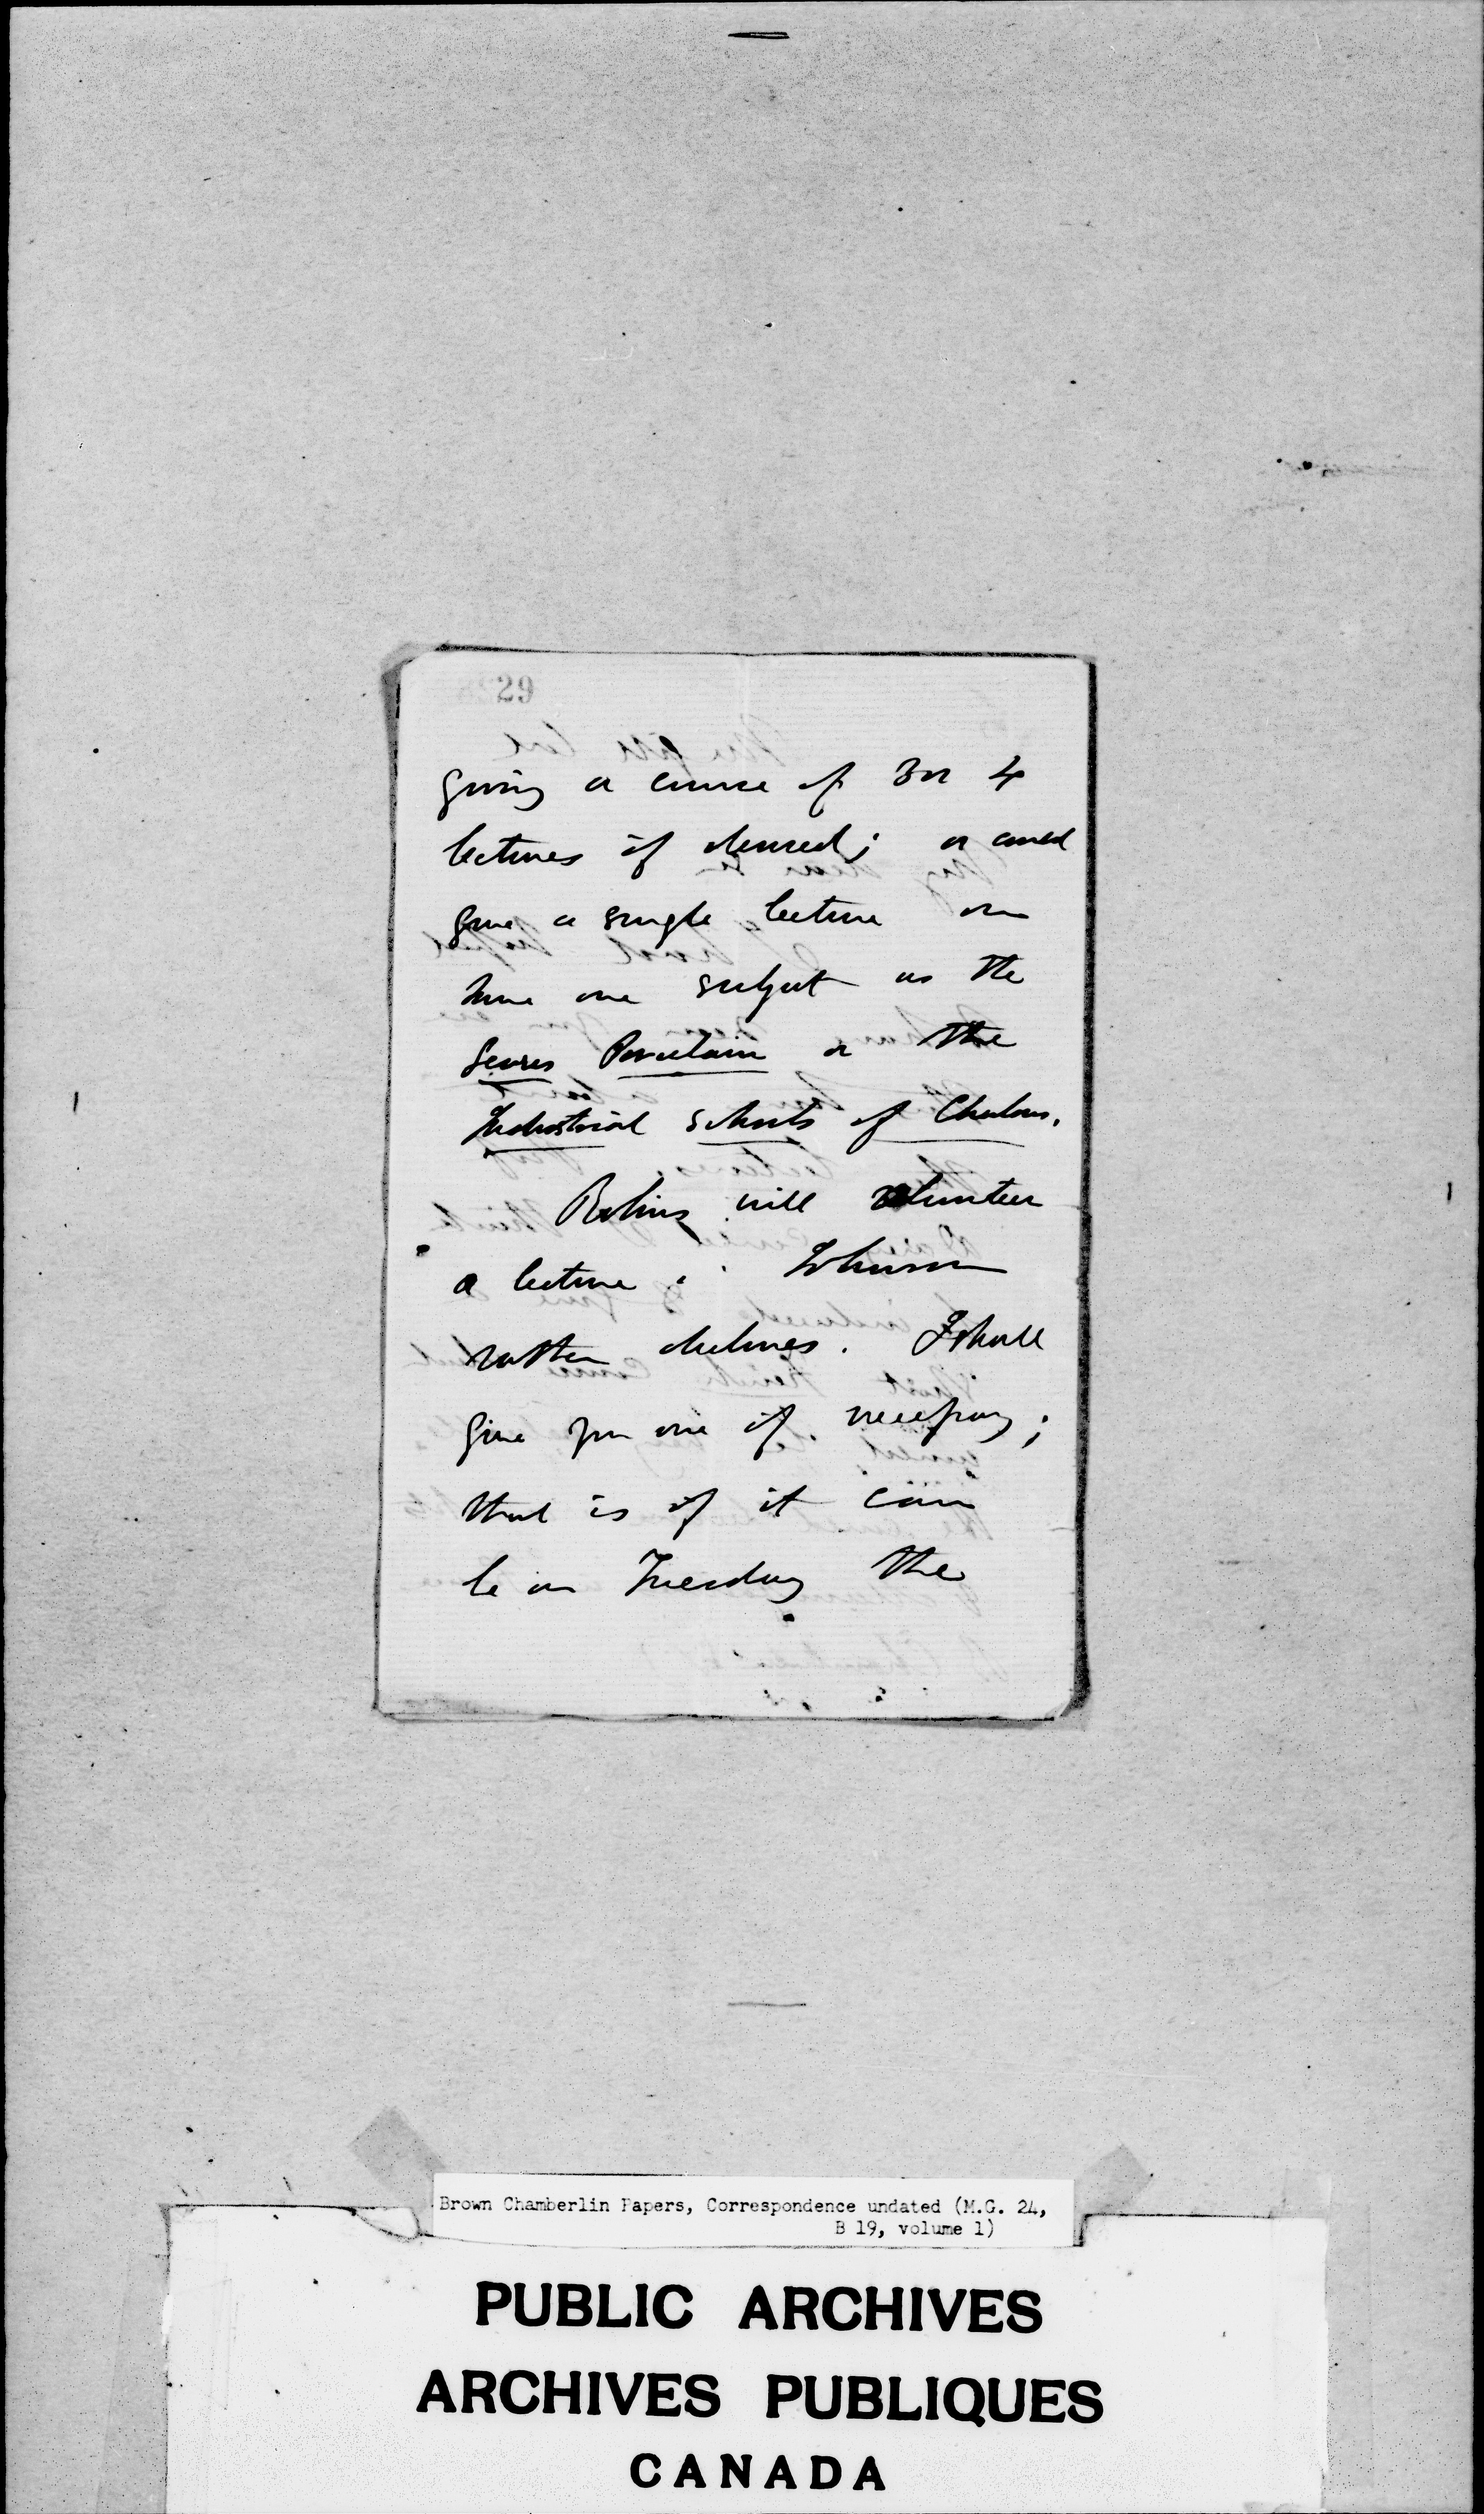 29
giving a course of 3 or 4
lectures if desired; or could
give a single lecture on
some one subject as the
Sevres Porcelain or the
Industrial Schools of Chalons.
Robins will volunteer
a lecture. Johnson
rather declines. I shall
give you one if necessary;
that is if it can
be on Tuesday the
Brown Chamberlin Papers, Correspondence undated (M.G. 24,
B 19, volume 1)
PUBLIC ARCHIVES
ARCHIVES PUBLIQUES
CANADA